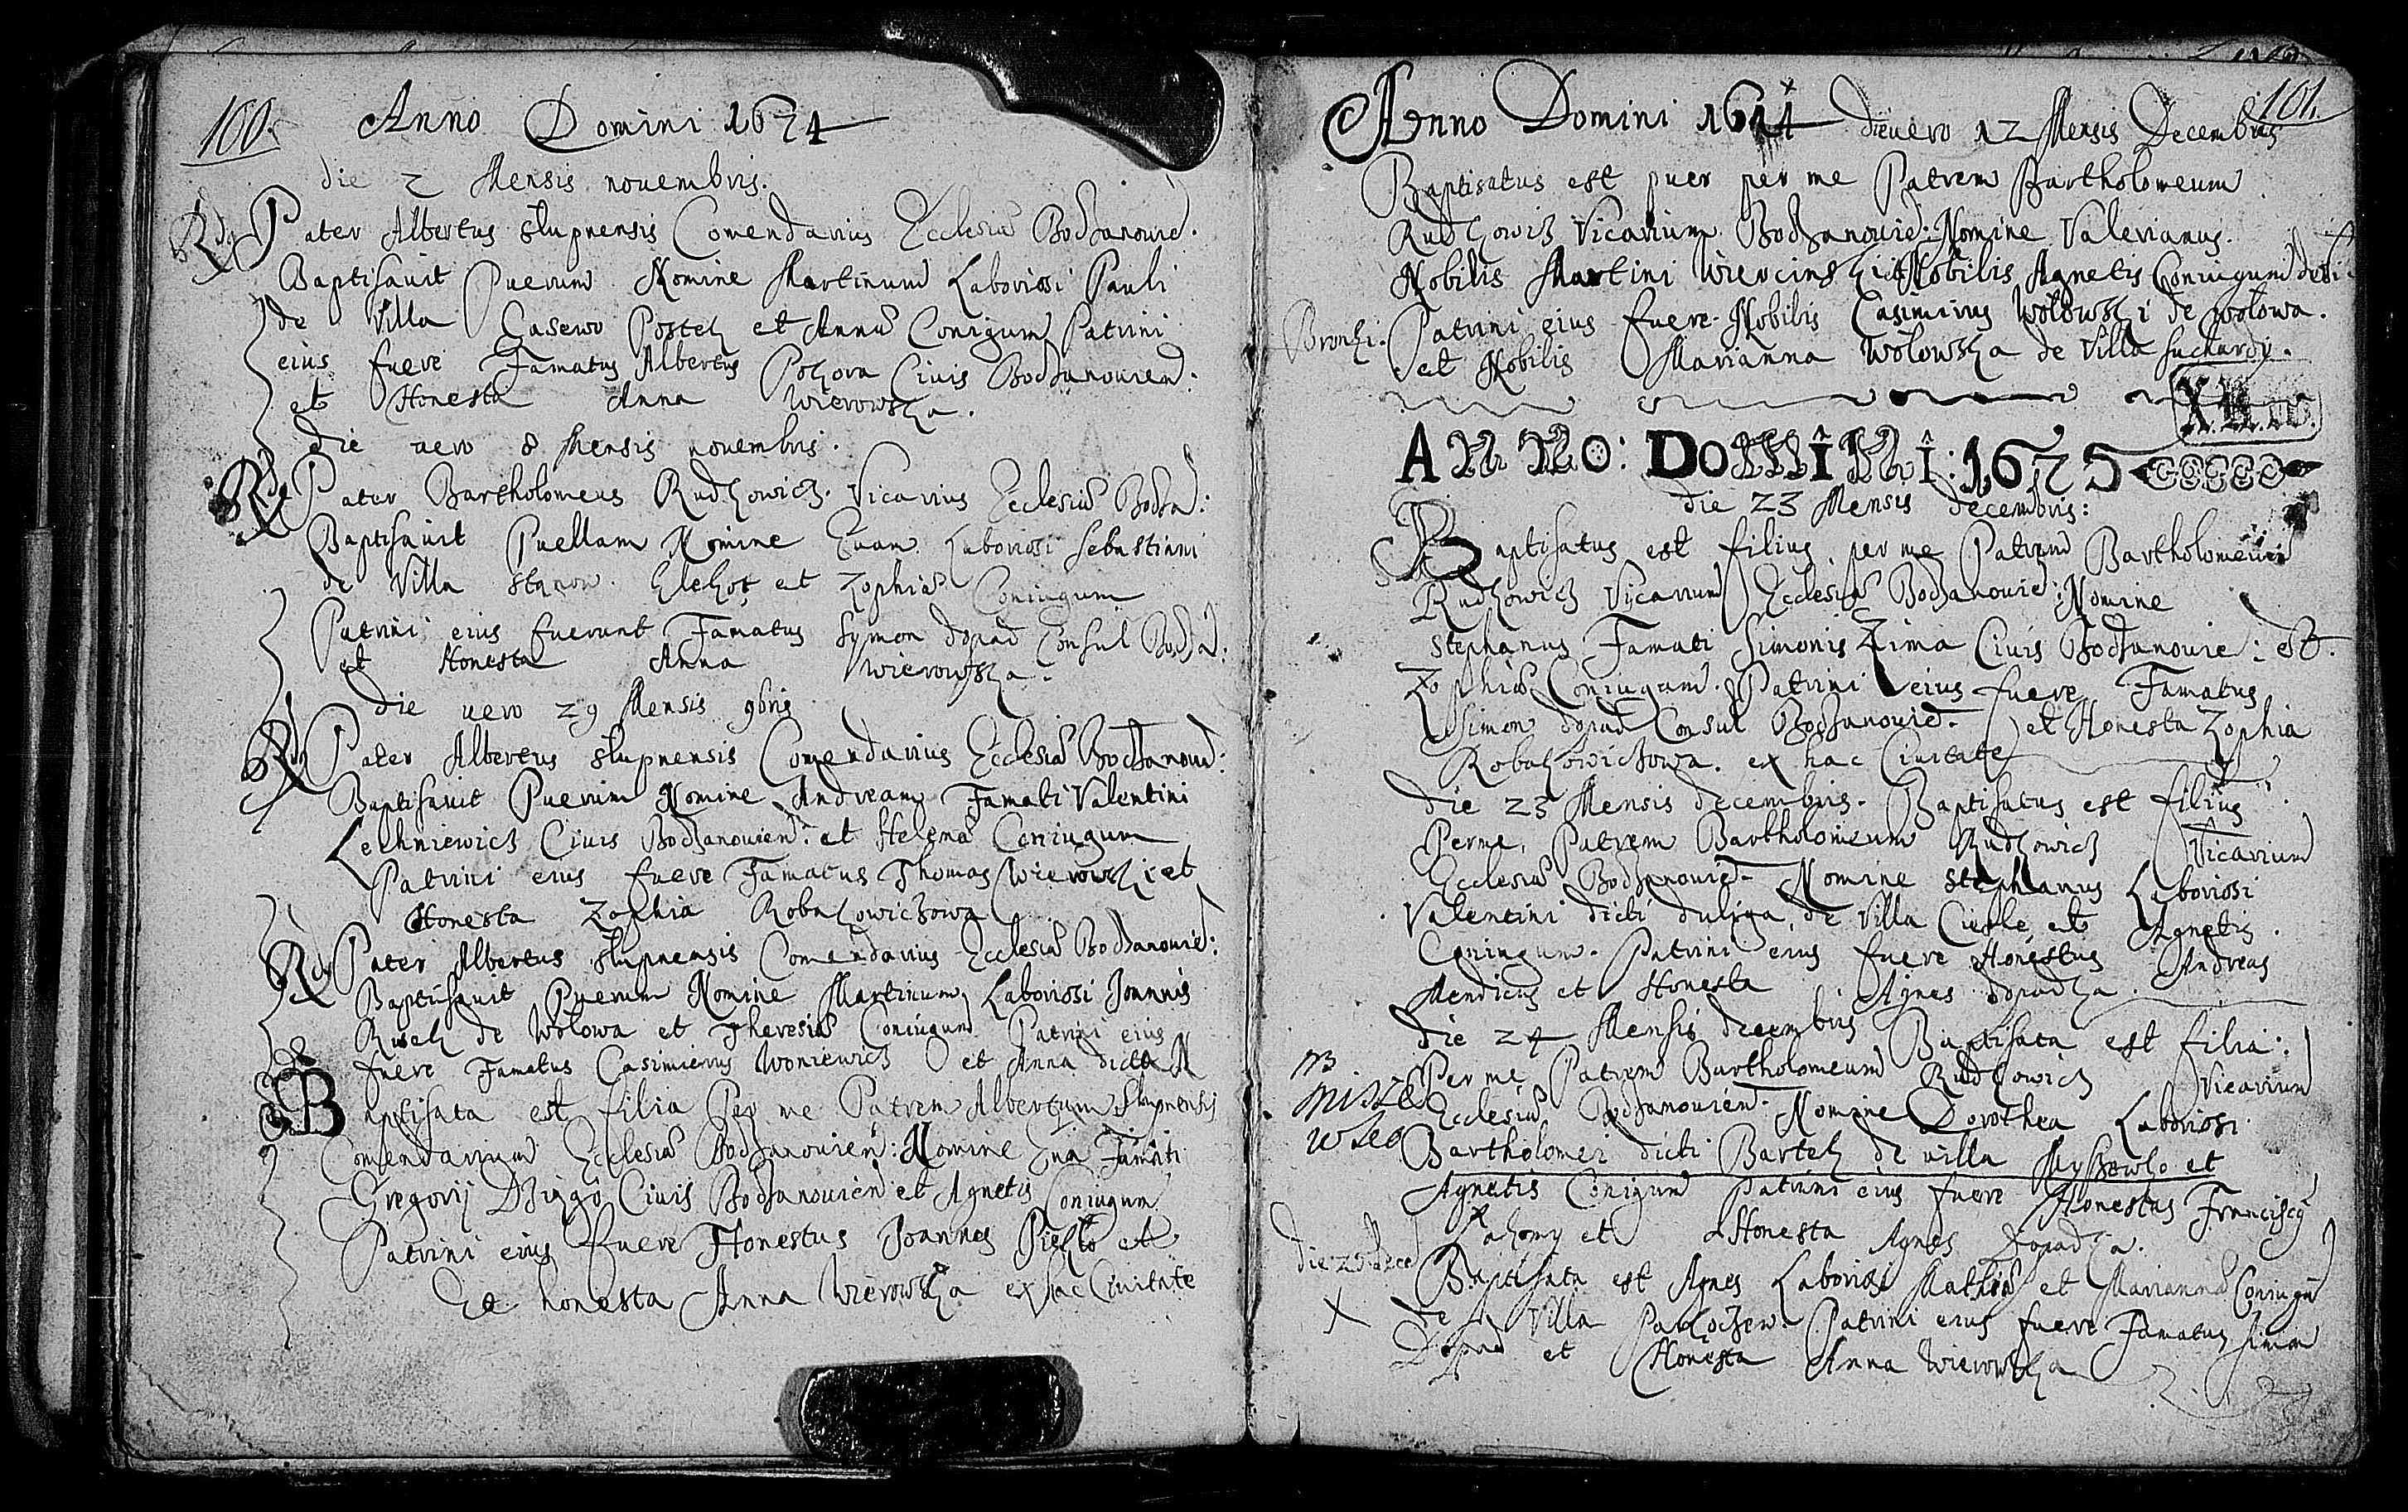 100.
Anno Domini 1674
die 2 Mensis novembris.
Rdus Pater Albertus Slupnensis Comendarius Ecclesiæ Bodzanovie.
Baptisavit Puerum Nomine Martinum Laboriosi Pauli
de Villa Gasewo Postek et Annæ Conigum Patrini
eius fuere Famatus Albertus Pokora Civis Bodzanovien:
et Honesta Anna Wierowska.
die vero 8 Mensis novembris.
Rd Pater Bartholomeus Rudkowich. Vicarius Ecclesiæ Bodza:
Baptisavit Puellam Nomine Evam Laboriosi Sebastiani
de Villa et Zophiæ Coniugum
Patrini eius fuerunt Famatus Symon dopad Consul Bodza:
et Honesta Anna Wierowska.
Die vero 29 Mensis 9bris
Rd Pater Albertus Slupnensis Comendarius Ecclesiæ Bodzanovie:
Baptisavit Puerum Nomine Andream Famati Valentini
Lechniewich Civis Bodzanovien: et Helenæ Coniugum
Patrini eius fuere Famatus Thomas Wierowski et
Honesta Zophia Robakowichowa
Rdus Pater Albertus Slupnensis Comendarius Ecclesiæ Bodzanovie:
Baptisavit Puerum Nomine Martinum Laboriosi Joannis
de Wolowa et Theresiæ Coniugum Patrini eius
fuere Famatus Casimirus Woniewich et Anna dicta N
Baptisata est filia Per me Patrem Albertum Slupnensis
Comendarium Ecclesiæ Bodzanovien: Nomine Eva Famati
Gregorij Civis Bodzanovien et Agnetis Coniugum
Patrini eius fuere Honestus Joannes Piechto et
Et honesta Anna Wierowska ex hac Civitate
101.
Anno Domini 1674 die vero 12 Mensis Decembris
Baptisatus est puer per me Patrem Bartholomeum
Rudkowich Vicarium Bodzanovie: Nomine Valerianus.
Nobilis Martini Wiercinski et Nobilis Agnetis Coniugum de Vi.
Bronki. Patrini eius fuere Nobilis Casimirus Wolowski de Wolowa.
et Nobilis Marianna Wolowska de Villa Suchardy.
ANNO: DOMINI: 1675
die 23 Mensis decembris:
Baptisatus est filius per me Patrem Bartholomeum
Rudkowich Vicarium Ecclesiæ Bodzanovie: Nomine
Stephanus Famati Simonis Zima Civis Bodzanovie: et
Zophiæ Coniugum. Patrini eius fuere Famatus
Simon dopad Consul Bodzanovie. et Honesta Zophia
Robakowichowa. ex hac Civitate
die 23 Mensis decembris. Baptisatus est filius
Per me, Patrem Bartholomeum Rudkowich Vicarium
Ecclesiæ Bodzanovie. Nomine Stephanus Laboriosi
Valentini dicti duliga de Villa Cieśle et Agnetis.
Coniugum. Patrini eius fuere Honestus Andreas
Mendicus et Honesta Agnes dopadka.
die 24 Mensis decembris Baptisata est filia:
NB
Per me Patrem Bartholomeum Rudkowich Vicarium
Miszewko
Ecclesiæ Bodzanovien. Nomine Dorothea Laboriosi
Bartholomei dicti Bartek de villa Myszewko et
Agnetis Conigum Patrini eius fuere Honestus Francisc9
et Honesta Agnes Dopadka.
die 25 dece
Baptisata est Agnes Laboriosi Mathiæ et Mariannæ Coniugu
X
de Villa Parkoczew. Patrini eius fuere Famatus Simon
Dopad et Honesta Anna Wierowska